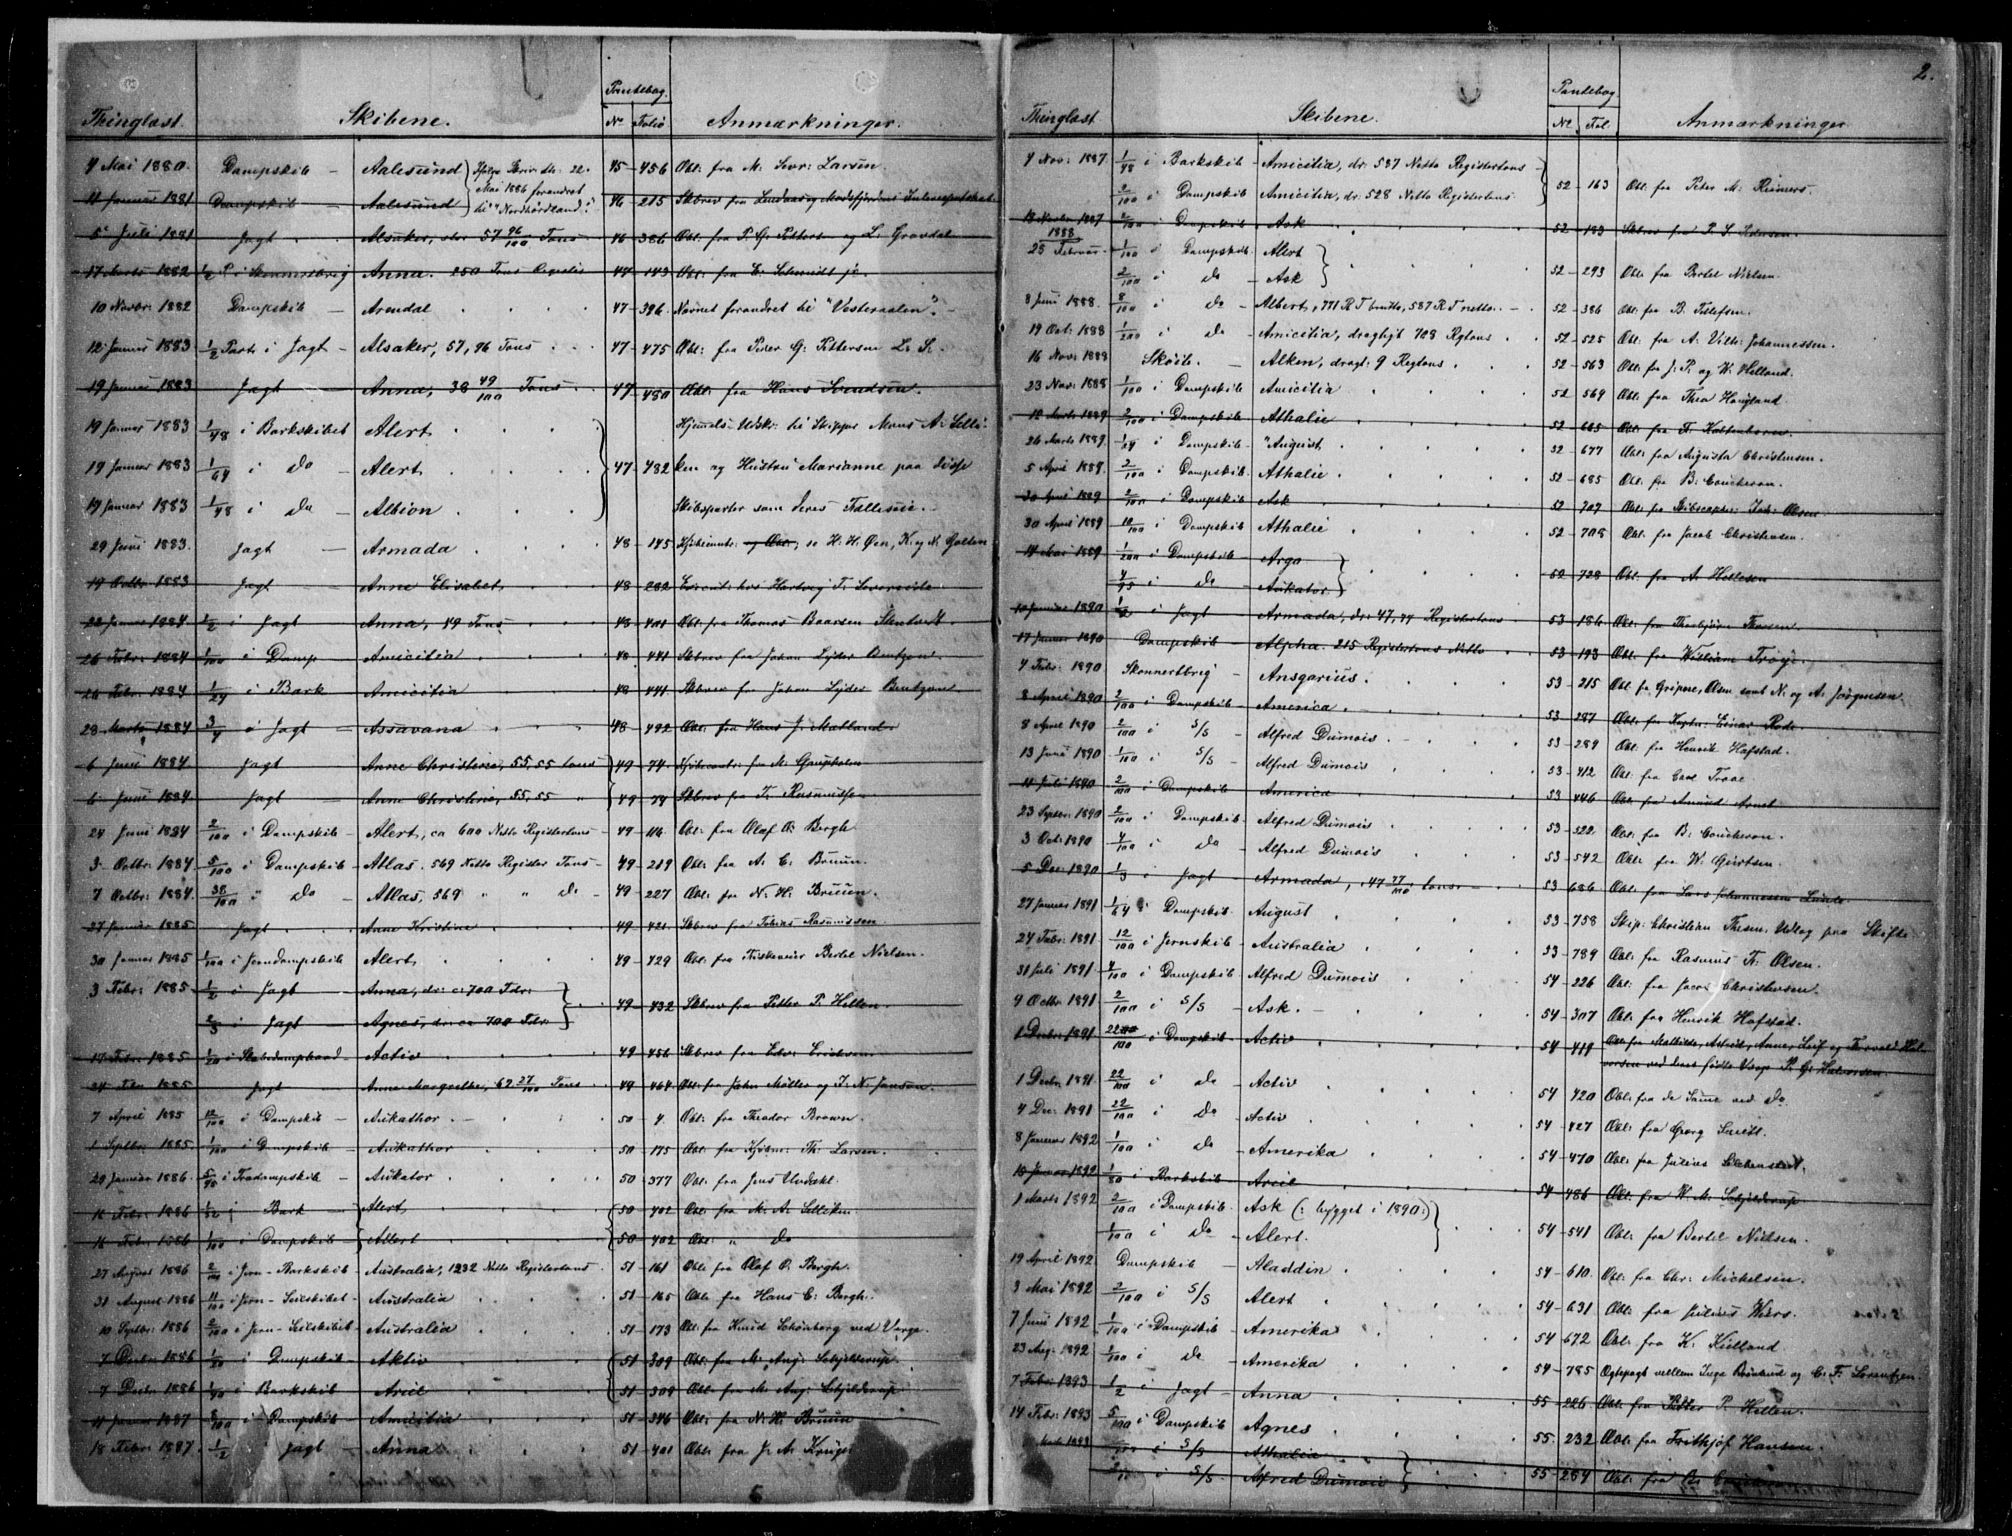 Thinglæst. Skibene. Pantebog. Nº Folio Anmærkninger.
4 Mai 1880. Dampskib - Aalesund } Ifølge Skriv. dt. 22. 45-456 Obl. fra M. Sevr. Larsen.
Mai 1886 forandret
11 Januar 1881 Dampskib - Aalesund til "Nordhordland". 46-215 Skbrev fra Lindaas og Masfjordens Interessentskab
5 Juli 1881 Jagt Alsaker, stor 57 96/100 Tons 46-386 Obl. fra P. G. Pettersen og L. Gravdal
17 Marts 1882 1/2 P. i Skonnertbrig Anna. 250 Tons 47-143 Obl. fra E. Schmidt jr.
10 Novbr. 1882 Dampskib - Arendal 47-396 Navnet forandret til "Vesteraalen".
12 Januar 1883 1/2 Part i Jagt - Alsaker, 57,96 Tons 47-475 Obl. fra Peder G. Pettersen L. S.
19 Januar 1883 Jagt - Anna, 38 49/100 Tons 47-480 Obl. fra Hans Svendsen.
19 Januar 1883 1/48 i Barkskibet Alert Hjemmels-Udskr. til Skipper Mons A. Selle-
19 Januar 1883 1/64 i do - Alert 47-482 ken og Hustru Marianne paa disse
19 Januar 1883 1/48 i do - Albion Skibsparter som deres Fælleseie.
29 Juni 1883. Jagt - Armada 48-145 Kjøbekontr. og Obl., se H. H. Øen, K. og N. Golten
19 Octbr 1883 Jagt - Anne Elisabet 48-282
22 Januar 1884 1/2 i Jagt - Anna, 49 Tons 48-401 Obl. fra Thomas Baarsen
26 Febr. 1884 1/100 i Damp - Amicitia 48-441 Skbrev fra Johan Lyder Bentzon
26 Febr. 1884 1/24 i Bark Amicitia 48-441 Skbrev fra Johan Lyder Bentzon
28 Marts 1884 3/4 i Jagt - Assavana 48-492 Obl. fra Hans J. Matland
6 Juni 1884 Jagt Anne Christine, 55,55 tons 49-74 Kjøbecontr. fra M. Gaupholm
6 Juni 1884 Jagt - Anne Christine, 55,55 " 49-74 Skbrev fra T. Rasmussen
24 Juni 1884 2/100 i Dampskib - Alert, ca 600 Netto Registertons - 49-116 Obl. fra Olaf O. Bergh.
3 Octbr. 1884 5/100 i Dampskib - Atlas. 569 Netto Register Tons 49-219 Obl. fra A. C. Bruun.
7 Octbr. 1884. 38/100 " do - Atlas, 569 " " do - 49-227 Obl. fra N. H. Bruun.
27 Januar 1885 Jagt Anne Kristine 49-421 Skbrev fra Tobias Rasmussen
30 Januar 1885 1/100 i Jerndampskib Alert. 49-429 Obl. fra Bertel Nielsen.
3 Febr. 1885 1/2 i Jagt - Anna, dr. c. 700 Tdr.
49-432 Skbrev fra Petter P. Hellen
2/3 i Jagt - Agnes, dr. ca 700 Tdr.
17 Febr. 1885 1/20 i - Activ 49-456 Skbrev fra Edv. Erichsen
24 Febr 1885 Jagt Anne Margrethe, 62 27/100 Tons 49-464 Obl. fra John Møller og J. N. Janson.
7 April 1885 12/100 i Dampskib - Aukathor. 50-4. Obl. fra Theodor Brown.
1 Septbr. 1885 1/100 i Dampskib - Aukathor 50-175 Obl. fra Kjøbm. Th. Larsen.
29 Januar 1886. 5/95 i Trædampskib - Aukator 50-377 Obl. fra Jens Undahl.
16 Febr. 1886 1/32 i Bark - Alert. 50-402 Obl. fra M. A. Selleken
16 Febr. 1886 1/100 i Dampskib - Alert. 50-402 Obl. " do
27 August 1886 2/100 i Jern-Barkskib - Australia, 1232 Netto Registertons 51-161 Obl. fra Olaf O. Bergh.
31 August 1886 11/100 i Jern-Seilskibet - Australia 51-165 Obl. fra Hans C. Bergh.
10 Septbr. 1886 2/100 i Jern-Seilskibet Australia 51-173 Obl. fra Knud Schønberg ved Værge.
7 Decbr. 1886 1/20 i Dampskib - Aktiv 51-309 Obl. fra M. Aug. Schjelderup.
7 Decbr. 1886 1/40 i Barkskib - Ariel 51-309 Obl. fra M. Aug. Schjelderup
11 Januar 1887 8/100 i Dampskib - Amicitia 51-346 Obl. fra N. H. Bruun
18 Febr. 1887. 1/2 i Jagt - Anna. 51-401 Obl. fra J. A. Krüger
2.
Thinglæst Skibene. Pantebog Nº Fol. Anmærkninger
4 Nov. 1887 1/48 i Barkskib - Amicitia, dr. 587 Netto Registertons
52-163 Obl. fra Peter M. Reimers.
2/100 i Dampskib Amicitia, dr. 528 Netto Registertons
18 Novbr. 1887 2/100 i Dampskib - Ask 52-183 Skbrev fra P. S. Pedersen.
1888
28 Februar 1/100 i Dampskib Alert
2/100 i do - Ask 52-293 Obl. fra Bertel Nielsen
8 Juni 1888. 8/100 i do - Albert, 771 R T brutto, 587 R T netto 52-386 Obl. fra B. Tellefsen.
19 Oct. 1888 1/200 i do - Amicitia, drægtigt 708 Rgtons 52-525 Obl. fra A. Vilh. Johannessen.
16 Nov. 1888 Skøite. - Alken, drægt. 9 Regtons 52-563 Obl. fra J. P. og W. Helland.
23 Nov. 1888 1/100 i Dampskib - Amicitia 52 569 Obl. fra Thea Haugland.
12 Marts 1889 2/100 i Dampskib Athalie 52-665 Obl. fra Fr. Kaltenborn.
26 Marts 1889. 1/24 i Dampskib - "August 52-677 Obl. fra Augusta Christensen.
5 April 1889. 2/100 i Dampskib. Athalie 52-685 Obl. fra B. Coucheron.
30 April 1889 2/100 i Dampskib Ask 52-707 Obl. fra Skibscaptn. Joh. Olsen
30 April 1889 10/100 i Dampskib Athalie 52-708 Obl. fra Jacob Christensen.
14 Mai 1889 1/200 i Dampskib - Argo
52-728 Obl. fra A. Hellesen
4/95 i do - Aukator
10 Januar 1890 1/2 i Jagt - Armada, dr. 47,77 Registertons 53-186 Obl. fra Thorbjørn Thorsen
17 Januar 1890 Dampskib - Alpha. 215 Registertons Netto 53-193 Obl. fra William Troye
4 Febr. 1890 Skonnertbrig - Ansgarius. 53-215 Obl. fr. Gripne, Olsen samt N. og A. Jørgensen
8 April 1890 2/100 i Dampskib - America. 53-287 Obl. fra Captn. Einar Rode
8 April 1890 2/100 i S/S - Alfred Dumois. 53-289 Obl. fra Henrik Hafstad.
13 Juni 1890 1/100 i S/S - Alfred Dumois 53-412 Obl. fra Carl Traae
11 Juli 1890 2/100 i Dampskib America 53 446 Obl. fra Amund Arnet
23 Septbr. 1890 2/100 i Dampskib - Alfred Dumois 53-522. Obl. fra B. Coucheron.
3 Oct. 1890 4/100 i do - Alfred Dumois 53-542 Obl. fra W. Giertsen.
5 Dec. 1890 1/3 i Jagt - Armada, 47 77/100 tons 53 686 Obl. fra Lars Johannessen
27 Januar 1891 1/64 i Dampskib. August 53-758 Skip. Christian Thesen Udlæg paa Skifte
24 Febr. 1891 12/100 i Jernskib - Australia 53-789 Obl. fra Rasmus Fr. Olsen.
31 Juli 1891 4/100 i Dampskib Alfred Dumois 54-226 Obl. fra Jacob Christensen.
9 Octbr. 1891 2/100 i S/S - Ask. 54-307 Obl. fra Henrik Hafstad.
1 Decbr. 1891 22/100 i Dampskib - Activ 54 419 Obl. fra Mathilde, Astrid, Anna, Leif og Torvald Hal-
vorsen ved deres fødte Værge P. G. Halvorsen.
1 Decbr. 1891. 22/100 i do - Activ 54 420 Obl. fra de Samme ved do.
4 Dec. 1891 22/100 i do - Activ 54-427 Obl. fra Georg Smitt.
8 Januar 1892 1/100 i do - Amerika 54-470 Obl. fra Julius
15 Januar 1892 1/80 i Barkskib Ariel 54-486 Obl. fra W. M. Schjelderup
1 Marts 1892 2/100 i Dampskib. Ask (: bygget i 1890:)
1/100 i do - Alert. 54-541 Obl. fra Bertel Nielsen.
19 April 1892. Dampskib - Aladdin. 54-610. Obl. fra Chr. Michelsen.
3 Mai 1892 2/100 i S/S Alert 54-631 Obl. fra Julius Wiers.
7 Juni 1892 1/100 i Dampskib Amerika 54 672 Obl. fra K. Kielland
23 Aug. 1892 1/100 i do - Amerika 54-785 Ægtepagt mellem Inga og C. F. Lorentzen.
7 Febr. 1893 1/2 i Jagt - Anna 55-226 Obl. fra Petter P. Hellen.
14 Febr. 1893 5/100 i Dampskib Agnes 55. 232 Obl. fra Frithjof Hansen.
1893 i S/S Athalie
i S/S. Alfred Dumois 55-284 Obl. fra B.